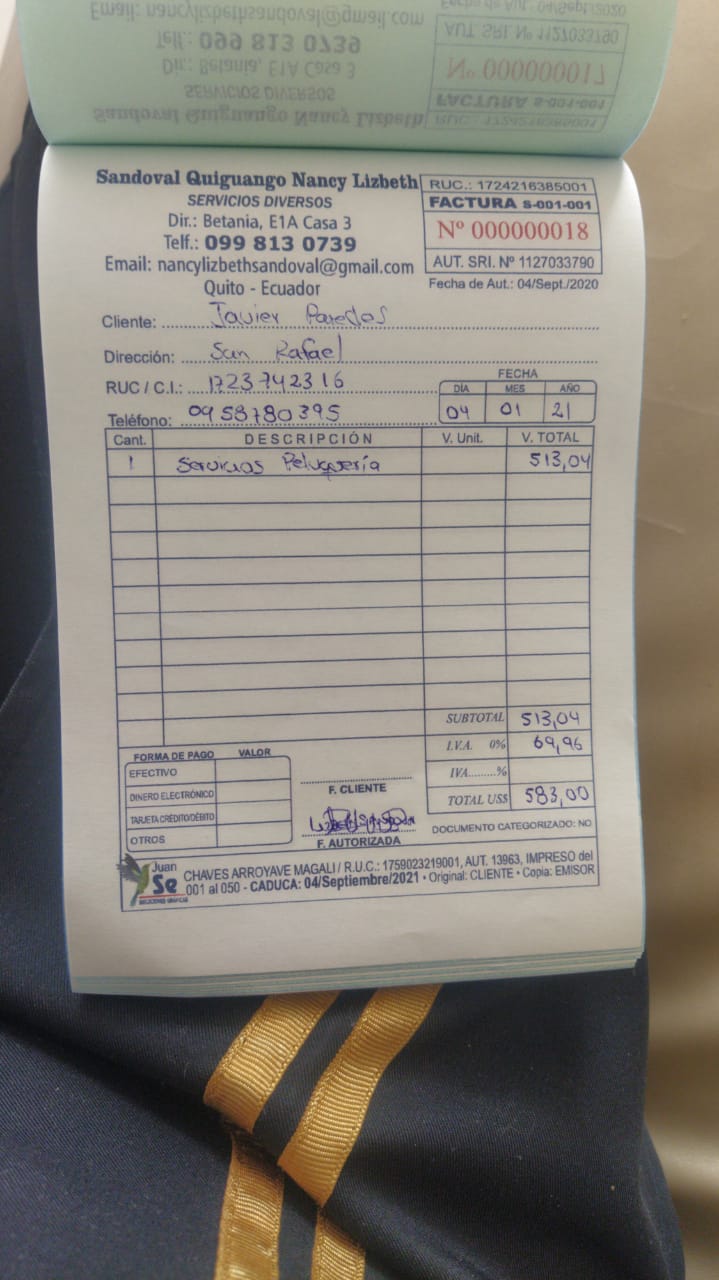 Email: nancylizbethsandoval@gmail.com
Telf.: 099 813 0739
Dir.: Betania, E1A Casa 3
SERVICIOS DIVERSOS
Sandoval Quiguango Nancy Lizbeth
Fecha de Aut.: 04/Sept./2020
AUT. SRI. Nº 1127033790
Nº 000000017
FACTURA S-001-001
RUC.: 1724216385001
Sandoval Quiguango Nancy Lizbeth
SERVICIOS DIVERSOS
Dir.: Betania, E1A Casa 3
Telf.: 099 813 0739
Email: nancylizbethsandoval@gmail.com
Quito - Ecuador
RUC.: 1724216385001
FACTURA S-001-001
Nº 000000018
AUT. SRI. Nº 1127033790
Fecha de Aut.: 04/Sept./2020
Cliente: Javier Paredes
Dirección: San Rafael
RUC / C.I.: 1723742316
Teléfono: 0958780395
FECHA
DÍA MES AÑO
04 01 21
Cant. DESCRIPCIÓN V. Unit. V. TOTAL
1 Servicios Peluquería 513,04
SUBTOTAL 513,04
I.V.A. 0% 69,96
IVA.........%
TOTAL US$ 583,00
FORMA DE PAGO VALOR
EFECTIVO
DINERO ELECTRÓNICO
TARJETA CRÉDITO/DÉBITO
OTROS
F. CLIENTE
F. AUTORIZADA
DOCUMENTO CATEGORIZADO: NO
Juan
Se
SOLUCIONES GRÁFICAS
CHAVES ARROYAVE MAGALI / R.U.C.: 1759023219001, AUT. 13963, IMPRESO del
001 al 050 - CADUCA: 04/Septiembre/2021 • Original: CLIENTE • Copia: EMISOR